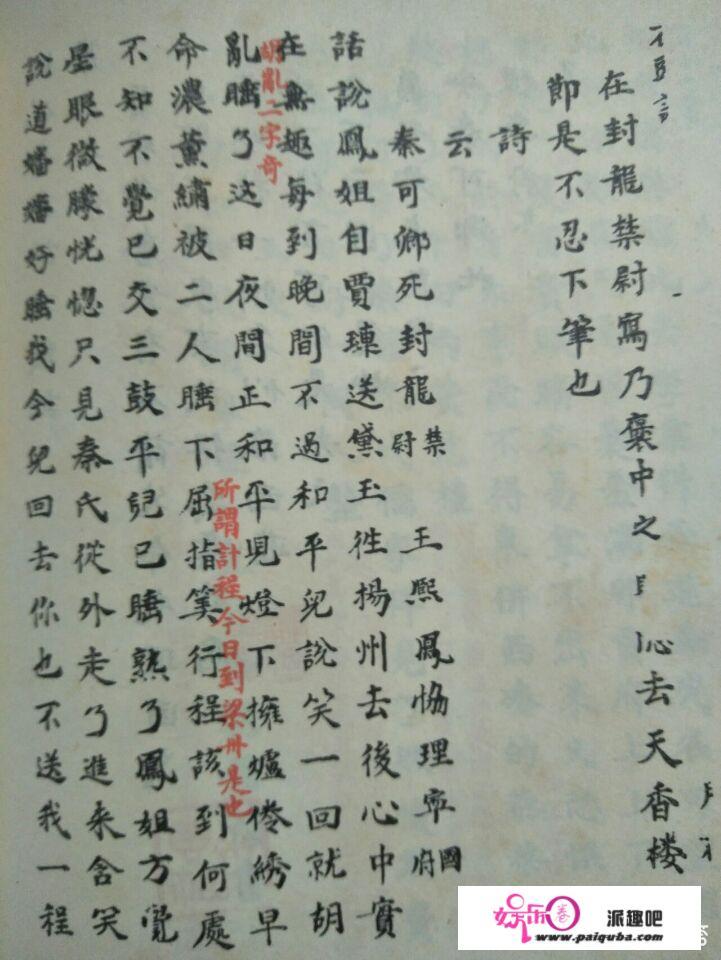 在封龍禁尉寫乃褒中之
去天香楼
即是不忍下筆也
詩
云
秦可卿死封龍禁尉 王熙鳳協理寧國府
話說鳳姐自賈璉送黛玉徃揚州去後心中實
在無趣每到晚間不過和平兒說笑一回就胡
胡亂二字奇
亂睡了这日夜間正和平児燈下擁爐倦綉早
所謂計程今日到梁州是也
命濃薰繡被二人睡下屈指筭行程該到何處
不知不覺已交三鼓平兒已睡熟了鳳姐方覺
星眼微朦恍惚只見秦氏從外走了進來含笑
說道嬸嬸好睡我今兒回去你也不送我一程
娱乐卷
派趣吧
www.paiquba.com